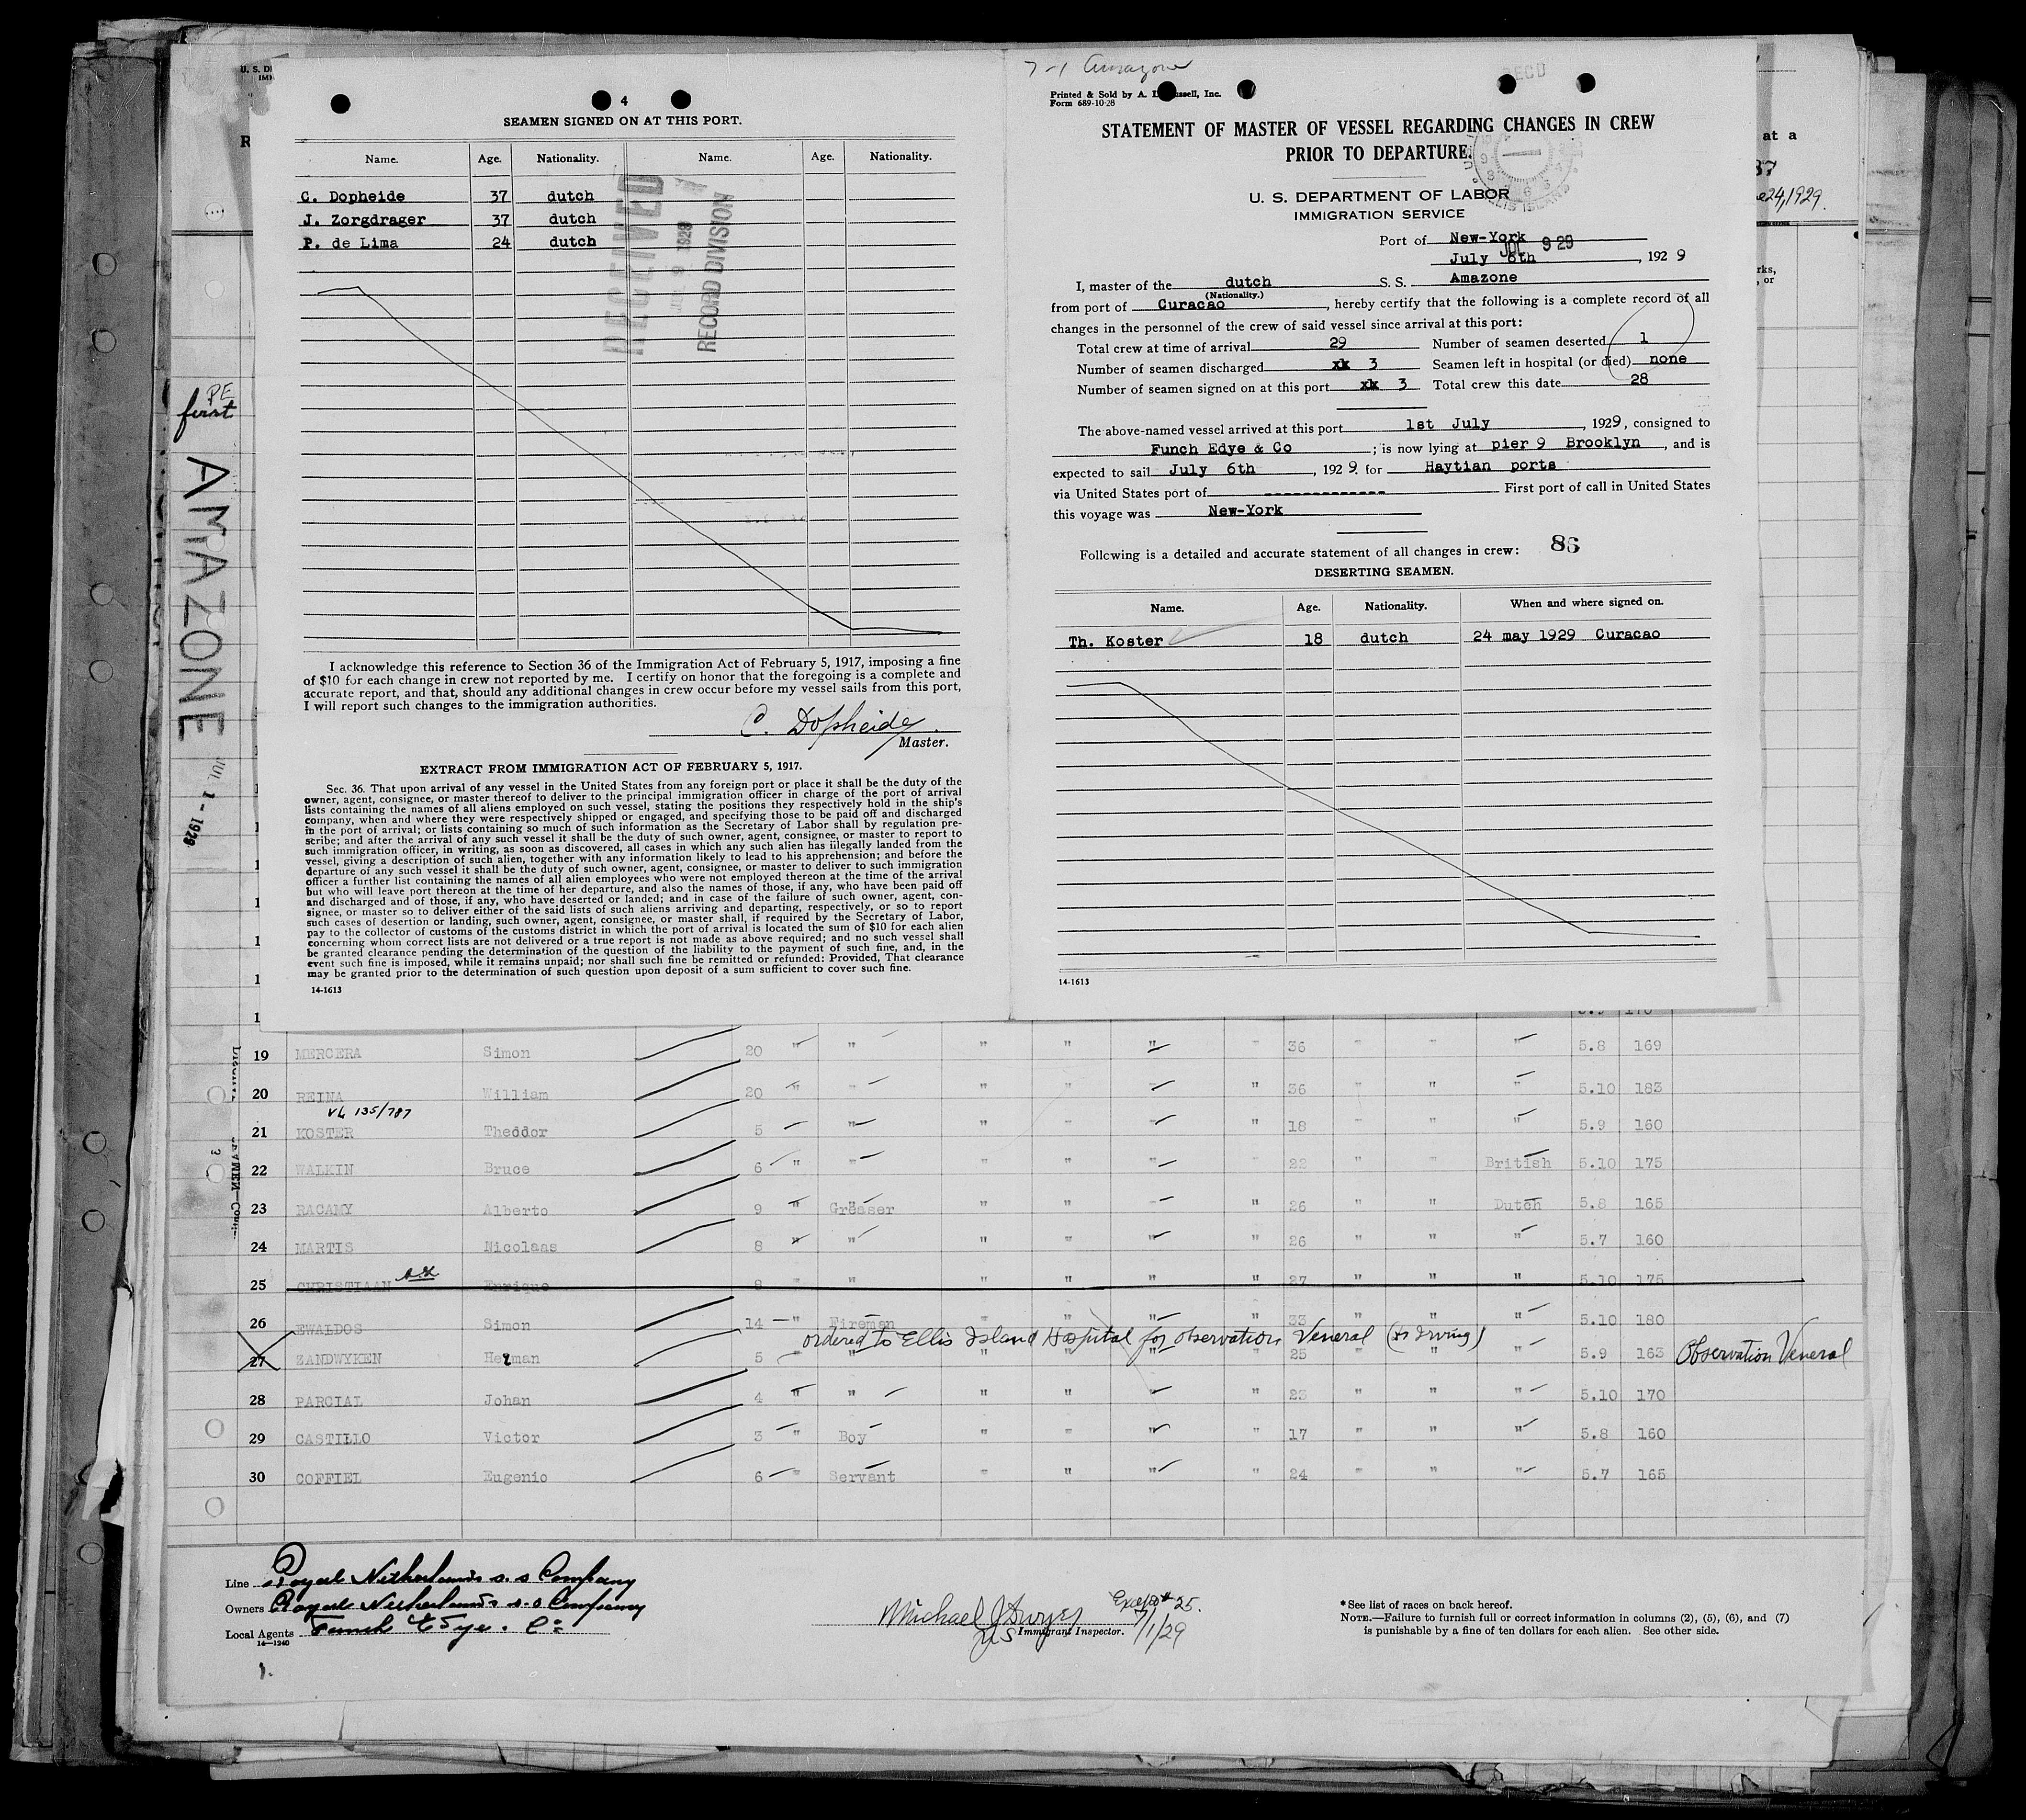 4
SEAMEN SIGNED ON AT THIS PORT.
Name. Age. Nationality. Name. Age. Nationality.
C. Dopheide 37 dutch
J. Zorgdrager 37 dutch
P. de Lima 24 dutch
RECEIVED
RECORD DIVISION
I acknowledge this reference to Section 36 of the Immigration Act of February 5, 1917, imposing a fine
of $10 for each change in crew not reported by me. I certify on honor that the foregoing is a complete and
accurate report, and that, should any additional changes in crew occur before my vessel sails from this port,
I will report such changes to the immigration authorities.
C. Dopheide
Master.
EXTRACT FROM IMMIGRATION ACT OF FEBRUARY 5, 1917.
Sec. 36. That upon arrival of any vessel in the United States from any foreign port or place it shall be the duty of the
owner, agent, consignee, or master thereof to deliver to the principal immigration officer in charge of the port of arrival
lists containing the names of all aliens employed on such vessel, stating the positions they respectively hold in the ship's
company, when and where they were respectively shipped or engaged, and specifying those to be paid off and discharged
in the port of arrival; or lists containing so much of such information as the Secretary of Labor shall by regulation pre-
scribe; and after the arrival of any such vessel it shall be the duty of such owner, agent, consignee, or master to report to
such immigration officer, in writing, as soon as discovered, all cases in which any such alien has illegally landed from the
vessel, giving a description of such alien, together with any information likely to lead to his apprehension; and before the
departure of any such vessel it shall be the duty of such owner, agent, consignee, or master to deliver to such immigration
officer a further list containing the names of all alien employees who were not employed thereon at the time of the arrival
but who will leave port thereon at the time of her departure, and also the names of those, if any, who have been paid off
and discharged and of those, if any, who have deserted or landed; and in case of the failure of such owner, agent, con-
signee, or master so to deliver either of the said lists of such aliens arriving and departing, respectively, or so to report
such cases of desertion or landing, such owner, agent, consignee, or master shall, if required by the Secretary of Labor,
pay to the collector of customs of the customs district in which the port of arrival is located the sum of $10 for each alien
concerning whom correct lists are not delivered or a true report is not made as above required; and no such vessel shall
be granted clearance pending the determination of the question of the liability to the payment of such fine, and, in the
event such fine is imposed, while it remains unpaid; nor shall such fine be remitted or refunded: Provided, That clearance
may be granted prior to the determination of such question upon deposit of a sum sufficient to cover such fine.
14-1613
7-1 Amazone
Printed & Sold by A. L. Russell, Inc.
Form 689-10-28
STATEMENT OF MASTER OF VESSEL REGARDING CHANGES IN CREW
PRIOR TO DEPARTURE.
U. S. DEPARTMENT OF LABOR
IMMIGRATION SERVICE
Port of New-York
JUL 9 29
July 6th, 1929
I, master of the dutch S. S. Amazone
(Nationality.)
from port of Curacao, hereby certify that the following is a complete record of all
changes in the personnel of the crew of said vessel since arrival at this port:
Total crew at time of arrival 29 Number of seamen deserted 1
Number of seamen discharged xk 3 Seamen left in hospital (or died) none
Number of seamen signed on at this port xk 3 Total crew this date 28
The above-named vessel arrived at this port 1st July, 1929, consigned to
Funch Edye & Co; is now lying at pier 9 Brooklyn, and is
expected to sail July 6th, 1929. for Haytian ports
via United States port of ------------- First port of call in United States
this voyage was New-York
Following is a detailed and accurate statement of all changes in crew: 86
DESERTING SEAMEN.
Name. Age. Nationality. When and where signed on.
Th. Koster 18 dutch 24 may 1929 Curacao
14-1613
at a
24, 1929.
first
AMAZONE
JUL 1 - 1929
19 MERCERA Simon 20 " " " " " " 36 " " " 5.8 169
20 REINA William 20 " " " " " " 36 " " " 5.10 183
VL 135/787
21 KOSTER Theddor 5 " " " " " 18 " " " 5.9 160
22 WALKIN Bruce 6 " " " " " " 22 " " British 5.10 175
23 RACAMY Alberto 9 " Greaser " " " " 26 " " Dutch 5.8 165
24 MARTIS Nicolaas 8 " " " " " " 26 " " " 5.7 160
25 CHRISTIAAN Enrique 8 " " " " " " 27 " " " 5.10 175
26 EWALDOS Simon 14 " Fireman " " " " 33 " " " 5.10 180
ordered to Ellis Island Hospital for observation Veneral
27 ZANDWYKEN Herman 5 " " " " " " 25 " " " 5.9 163 Observation Veneral
28 PARCIAL Johan 4 " " " " " " 23 " " " 5.10 170
29 CASTILLO Victor 3 " Boy " " " " 17 " " " 5.8 160
30 COFFIEL Eugenio 6 " Servant " " " " 24 " " " 5.7 165
Line Royal Netherlands s.s Company
Owners Royal Netherlands s.s Company
Local Agents Funch Edye. Co
14-1240
Except #25.
Michael J Dwyer
US Immigrant Inspector. 7/1/29
* See list of races on back hereof.
NOTE.—Failure to furnish full or correct information in columns (2), (5), (6), and (7)
is punishable by a fine of ten dollars for each alien. See other side.